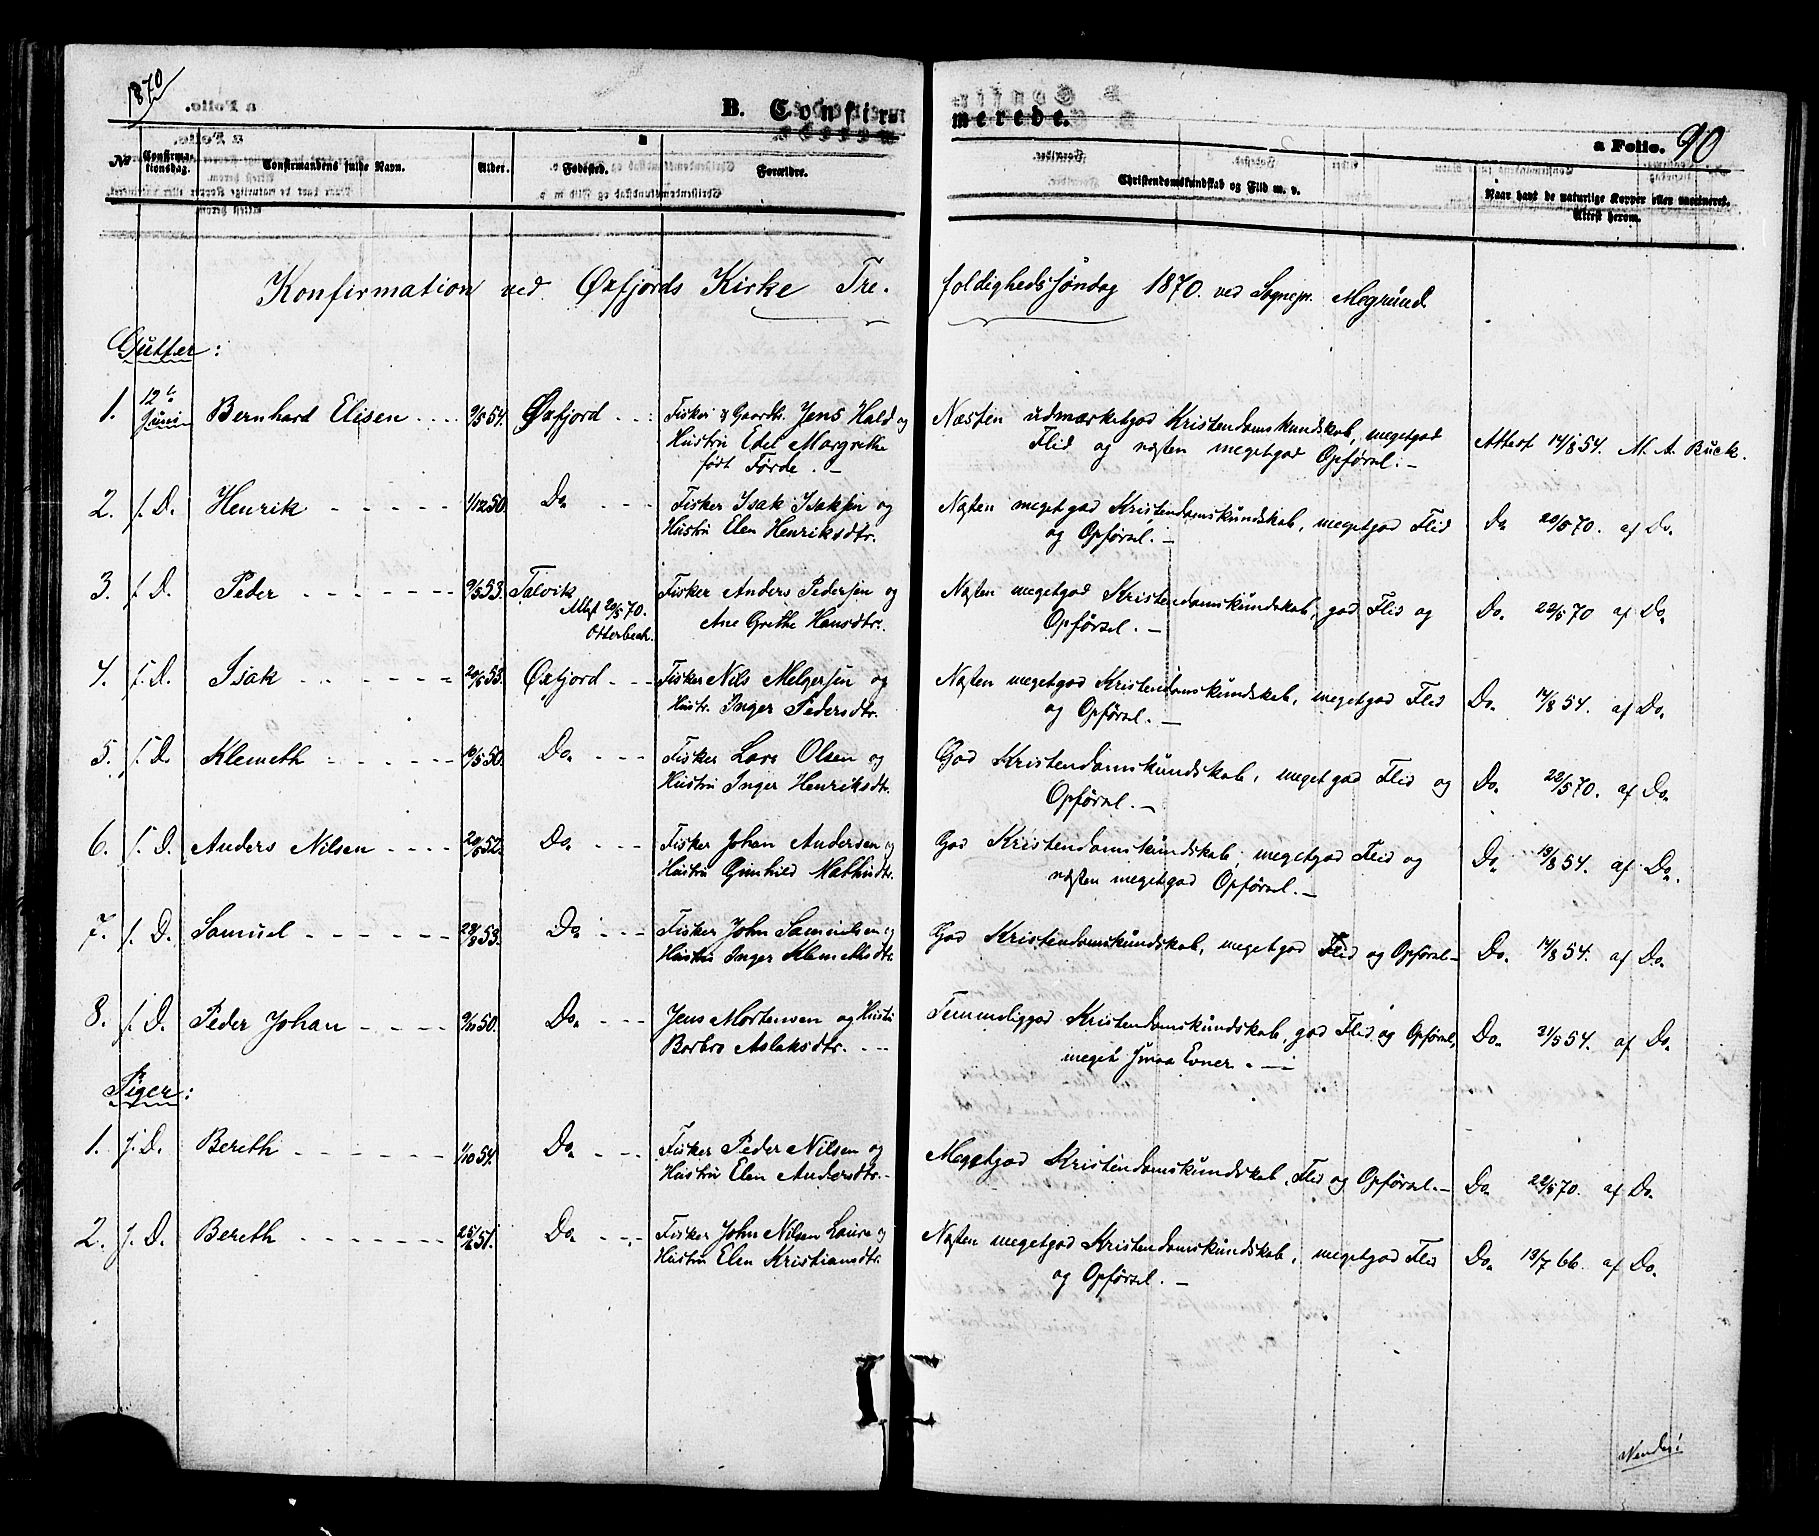 1870
B. Confirmerede.
a Folio. 90
No. Confirmationsdag. Confirmandens fulde Navn. Alder. Fødested. Forældre. Christendomskundskab og Flid m. v. Naar havt de naturlige Kopper eller vaccineret. Attest herom.
Konfirmation ved Øxfjords Kirke Trefoldighedssøndag 1870. ved Sognepr. Mogrund.
Gutter:
1. 12te Juni Bernhard Elisen 9/5 54. Øxfjord Fisker & Gaardb. Jens Hald og Næsten udmærketgod Kristendomskundskab, megetgod
Hustru Edel Margrethe Flid og næsten megetgod Opførsel. Attest 14/8 54. M. A. Buck.
født Førde.
2. s. D. Henrik 1/12 50. Do. Fisker Isak Isaksen og Næsten megetgod Kristendomskundskab, megetgod Flid Do. 20/5 70. af Do.
Hustru Elen Henriksdtr. og Opførsel.
3. s. D. Peder 9/5 53. Talvik Fisker Anders Pedersen og Næsten megetgod Kristendomskundskab, god Flid og Do. 22/5 70 af Do.
Attest 20/5 70. Ane Grethe Hansdtr. Opførsel.
Otterbech.
4. s. D. Isak 53. Øxfjord Fisker Nils Melgersen og Næsten megetgod Kristendomskundskab, megetgod Flid Do. 14/8 54. af Do.
Hustr. Inger Pedersdtr. og Opførsel.
5. s. D. Klemeth 10/5 50. Do. Fisker Lars Olsen og God Kristendomskundskab, megetgod Flid og Do. 22/5 70. af Do.
Hustru Inger Henriksdtr. Opførsel.
6. s. D. Anders Nilsen 52. Do. Fisker Johan Andersen og God Kristendomskundskab, megetgod Flid og Do. 19/8 54. af Do.
Hustru Gunhild Mathisdtr. næsten megetgod Opførsel.
7. s. D. Samuel 53. Do. Fisker John Samuelsen og God Kristendomskundskab, megetgod Flid og Opførsel Do. 14/8 54. af Do.
Hustru Inger Klemetsdtr.
8. s. D. Peder Johan 9/10 50. Do. Jens Mortensen og Hustru Temmeliggod Kristendomskundskab, god Flid og Opførsel, Do. 21/5 54. af Do.
Barbro Aslaksdtr. meget smaa Evner.
Piger:
1. s. D. Bereth 1/10 54. Do. Fisker Peder Nilsen og Megetgod Kristendomskundskab, Flid og Opførsel. Do. 22/5 70. af Do.
Hustru Elen Andersdtr.
2. s. D. Bereth 51. Do. Fisker John Nilsen og Næsten megetgod Kristendomskundskab, megetgod Flid Do. 19/7 66. af Do.
Hustru Elen Kristiansdtr. og Opførsel.
Vendes!